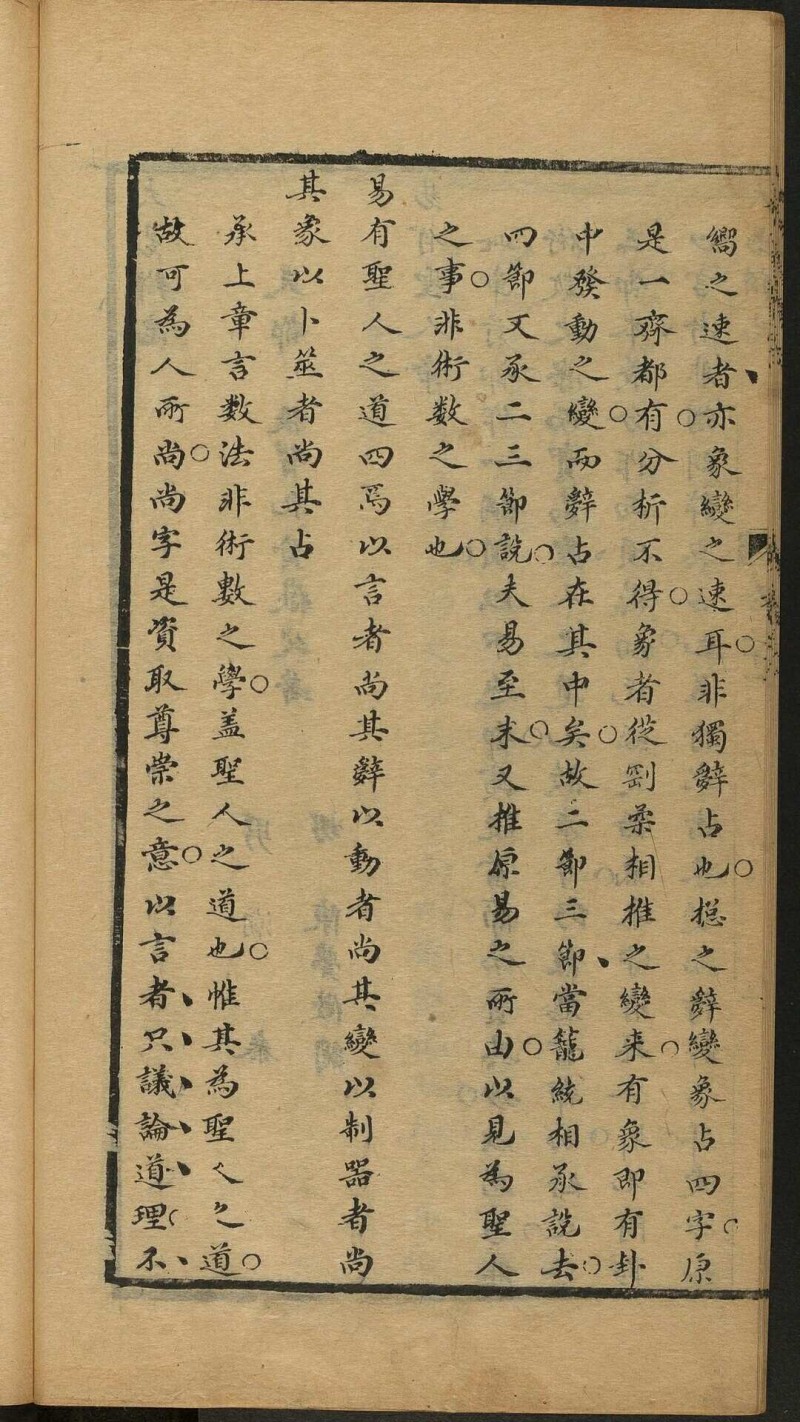 嚮之速者亦象變之速耳非獨辭占也總之辭變象占四字原
是一齊都有分析不得象者從剛柔相推之變來有象即有卦
中發動之變而辭占在其中矣故二節三節當籠統相承說去
四節又承二三節說夫易至末又推原易之所由以見為聖人
之事非術数之學也
易有聖人之道四焉以言者尚其辭以動者尚其變以制器者尚
其象以卜筮者尚其占
承上章言数法非術數之學盖聖人之道也惟其為聖人之道
故可為人所尚尚字是資取尊崇之意以言者只議論道理不